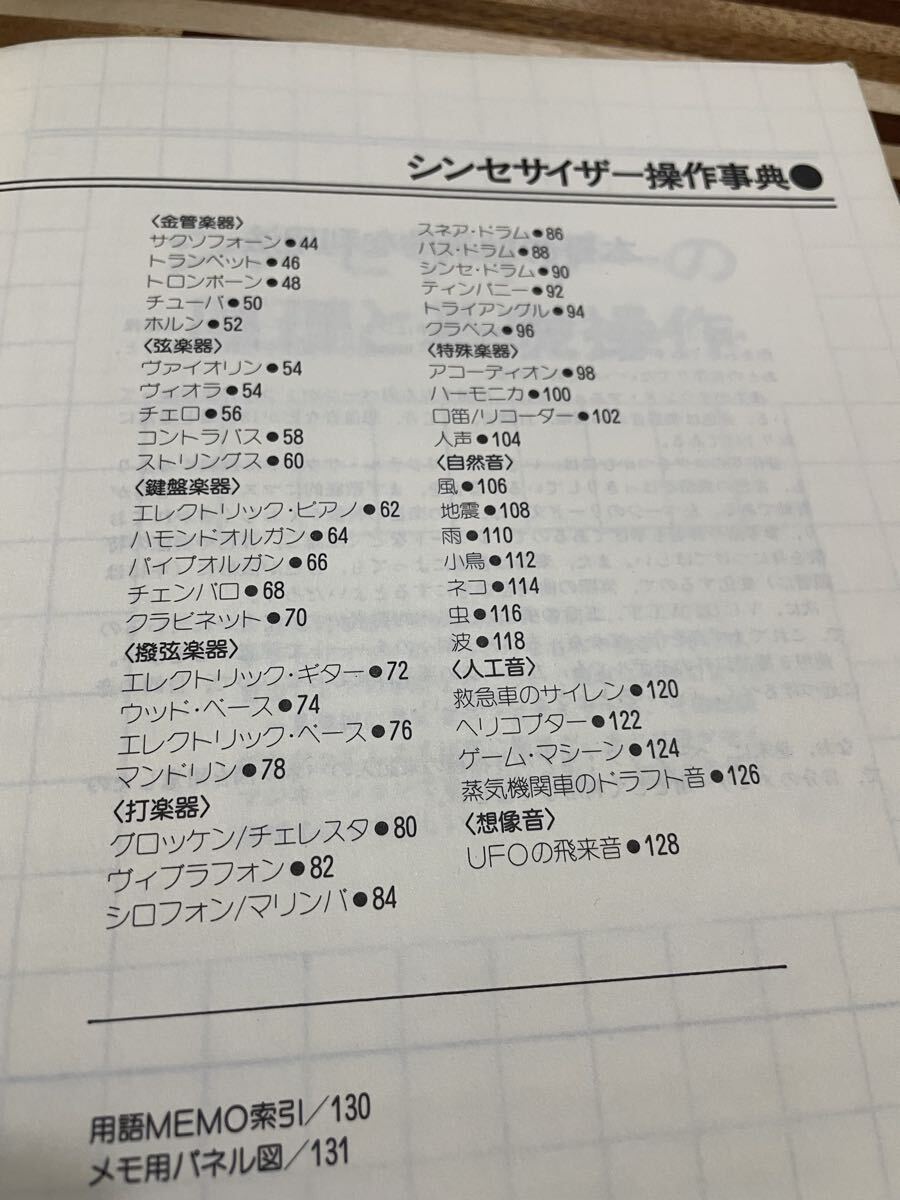 シンセサイザー操作事典●
〈金管楽器〉
サクソフォーン●44
トランペット●46
トロンボーン●48
チューバ●50
ホルン●52
〈弦楽器〉
ヴァイオリン●54
ヴィオラ●54
チェロ●56
コントラバス●58
ストリングス●60
〈鍵盤楽器〉
エレクトリック・ピアノ●62
ハモンドオルガン●64
パイプオルガン●66
チェンバロ●68
クラビネット●70
〈撥弦楽器〉
エレクトリック・ギター●72
ウッド・ベース●74
エレクトリック・ベース●76
マンドリン●78
〈打楽器〉
グロッケン/チェレスタ●80
ヴィブラフォン●82
シロフォン/マリンバ●84
スネア・ドラム●86
バス・ドラム●88
シンセ・ドラム●90
ティンパニー●92
トライアングル●94
クラベス●96
〈特殊楽器〉
アコーディオン●98
ハーモニカ●100
口笛/リコーダー●102
人声●104
〈自然音〉
風●106
地震●108
雨●110
小鳥●112
ネコ●114
虫●116
波●118
〈人工音〉
救急車のサイレン●120
ヘリコプター●122
ゲーム・マシーン●124
蒸気機関車のドラフト音●126
〈想像音〉
UFOの飛来音●128
用語MEMO索引/130
メモ用パネル図/131